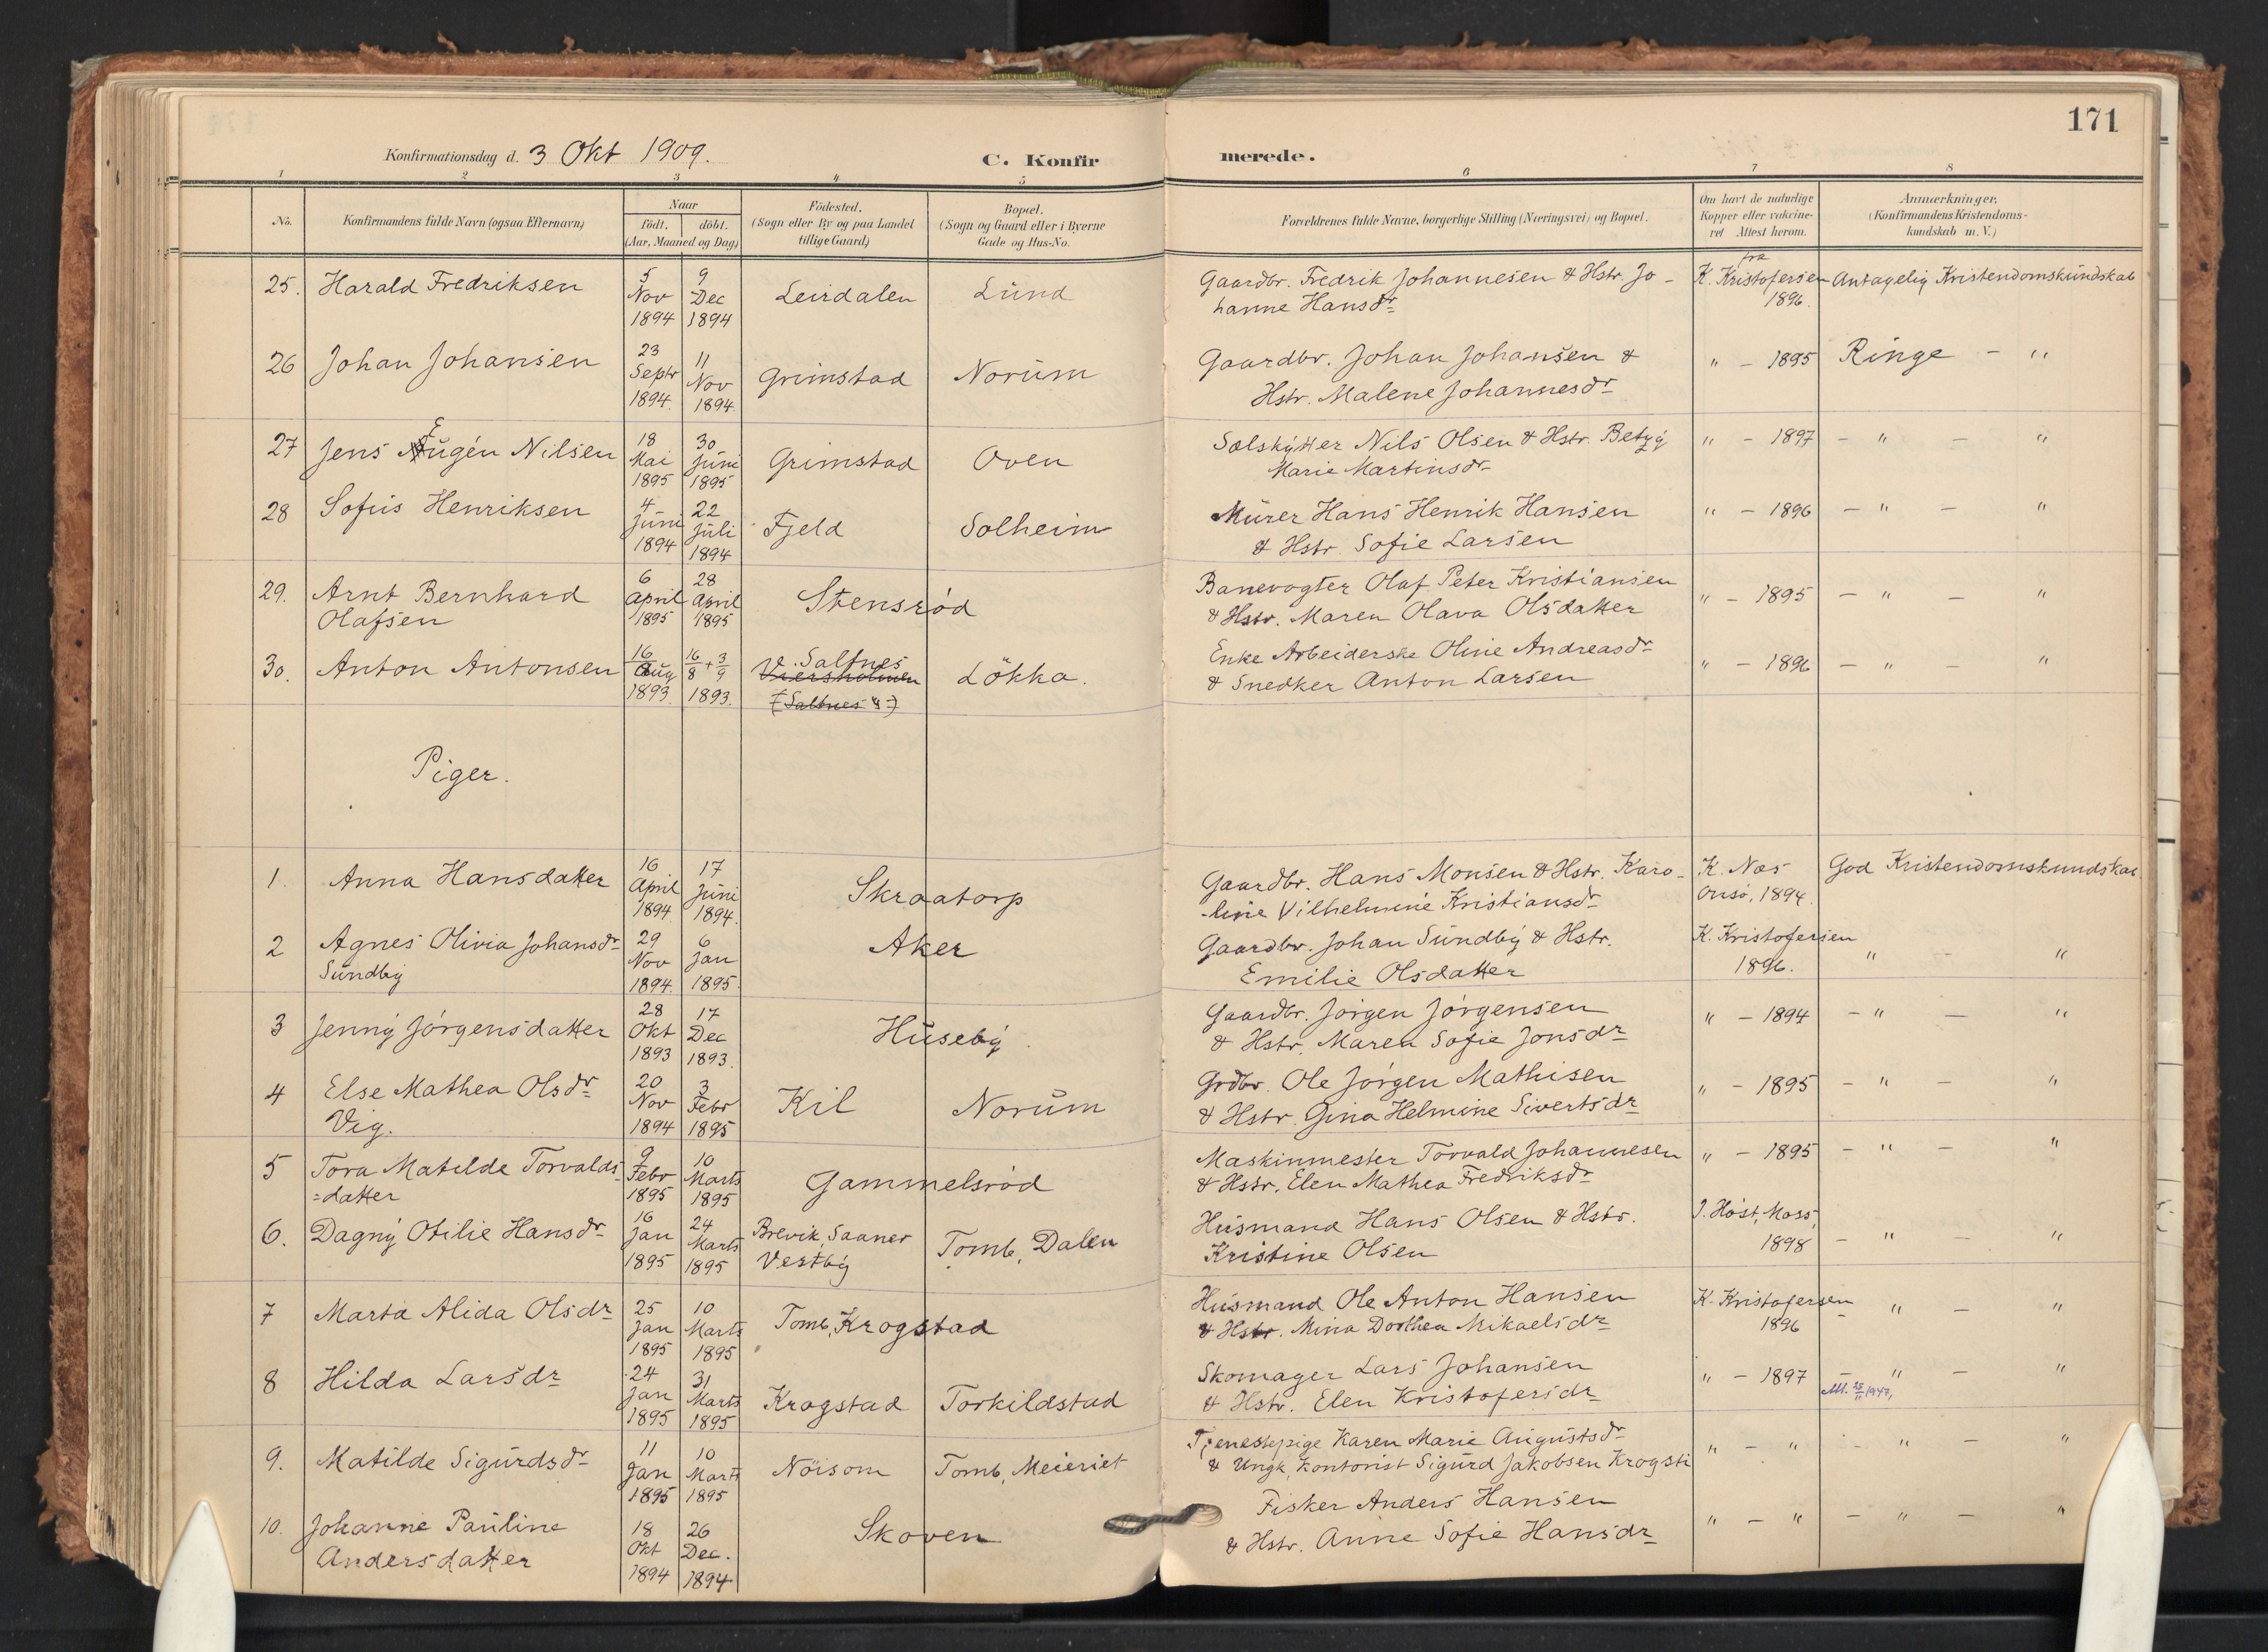 171
Konfirmationsdag d. 3 Okt 1909.
C. Konfir
merede.
1 2 3 4 5 6 7 8
No.
Konfirmandens fulde Navn (ogsaa Efternavn)
Naar
födt. döbt.
(Aar, Maaned og Dag)
Födested.
(Sogn eller By og paa Landet
tillige Gaard)
Bopæl.
(Sogn og Gaard eller i Byerne
Gade og Hus-No.
Forældrenes fulde Navne, borgerlige Stilling (Næringsvei) og Bopæl.
Om havt de naturlige
Kopper eller vakcine-
ret Attest herom.
Anmærkninger.
(Konfirmandens Kristendoms-
kundskab m. V.)
25. Harald Fredriksen
5 Nov 1894
9 Dec 1894
Leirdalen
Lund
Gaardbr. Fredrik Johannesen & Hstr. Jo-
hanne Hansdr
fra
K. Kristofersen
1896.
Antagelig Kristendomskundskab
26 Johan Johansen
23 Septr 1894.
11 Nov 1894.
Grimstad
Norum
Gaardbr. Johan Johansen &
Hstr. Malene Johannesdr
" - 1895
Ringe - "
27 Jens Eugén Nilsen
18 Mai 1895
30 Juni 1895
Grimstad
Oven
Sælskytter Nils Olsen & Hstr. Betzy
Marie Martinsdr
" - 1897
- " - "
28 Sofus Henriksen
4 Juni 1894
22 Juli 1894
Fjeld
Solheim
Murer Hans Henrik Hansen
& Hstr. Sofie Larsen
" - 1896
- " - "
29. Arnt Bernhard
Olafsen
6 April 1895
28 April 1895
Stensrød
Banevogter Olaf Peter Kristiansen
& Hstr. Maren Olava Olsdatter
" - 1895
- " - "
30. Anton Antonsen
16 Aug 1893.
16/8 + 3/9 1893.
V. Saltnes
(Saltnes ")
Løkka.
Enke Arbeiderske Oline Andreasdr
& Snedker Anton Larsen
" - 1896
- " - "
Piger.
1. Anna Hansdatter
16 April 1894
17 Juni 1894.
Skraatorp
Gaardbr. Hans Monsen & Hstr. Karo-
line Vilhelmine Kristiansdr
K. Næs
Onsø, 1894.
God Kristendomskundskab
2 Agnes Olivia Johansdr
Sundby
29 Nov 1894.
6 Jan 1895.
Aker
Gaardbr. Johan Sundby & Hstr.
Emilie Olsdatter
K. Kristofersen
1896.
" - "
3 Jenny Jørgensdatter
28 Okt 1893
17 Dec 1893.
Huseby.
Gaardbr. Jørgen Jørgensen
& Hstr. Maren Sofie Jonsdr
" - 1894
- " - "
4 Else Mathea Olsdr
Vig.
20 Nov 1894
3 Febr 1895
Kil
Norum
Grdbr. Ole Jørgen Mathisen
& Hstr. Gina Helmine Sivertsdr
" - 1895
- " - "
5 Tora Matilde Torvalds-
=datter
9 Febr 1895
10 Marts 1895
Gammelsrød
Maskinmester Torvald Johannesen
& Hstr. Elen Mathea Fredriksdr
" - 1895
- " - "
6. Dagny Otilie Hansdr
16 Jan 1895
24 Marts 1895
Brevik, Saaner
Vestby
Tomb, Dalen
Husmand Hans Olsen & Hstr.
Kristine Olsen
J. Høst, Moss,
1898
- " - "
7 Marta Alida Olsdr
25 Jan 1895
10 Marts 1895
Tomb, Krogstad
Husmand Ole Anton Hansen
& Hstr. Mina Dorthea Mikaelsdr
K. Kristofersen
1896
- " - "
8 Hilda Larsdr
24 Jan 1895
31 Marts 1895
Krogstad
Torkildstad
Skomager Lars Johansen
& Hstr. Elen Kristofersdr
" - 1897
- " - "
1947,
9. Matilde Sigurdsdr
11 Jan 1895
10 Marts 1895
Nöisom
Tomb, Meieriet
Tjenestepige Karen Marie Augustsdr
& Ungk. Kontorist Sigurd Jakobsen Krogsti
" - "
- " - "
10. Johanne Pauline
Andersdatter
18 Okt 1894
26 Dec. 1894
Skoven
Fisker Anders Hansen
& Hstr. Anne Sofie Hansdr
" - "
- " - "